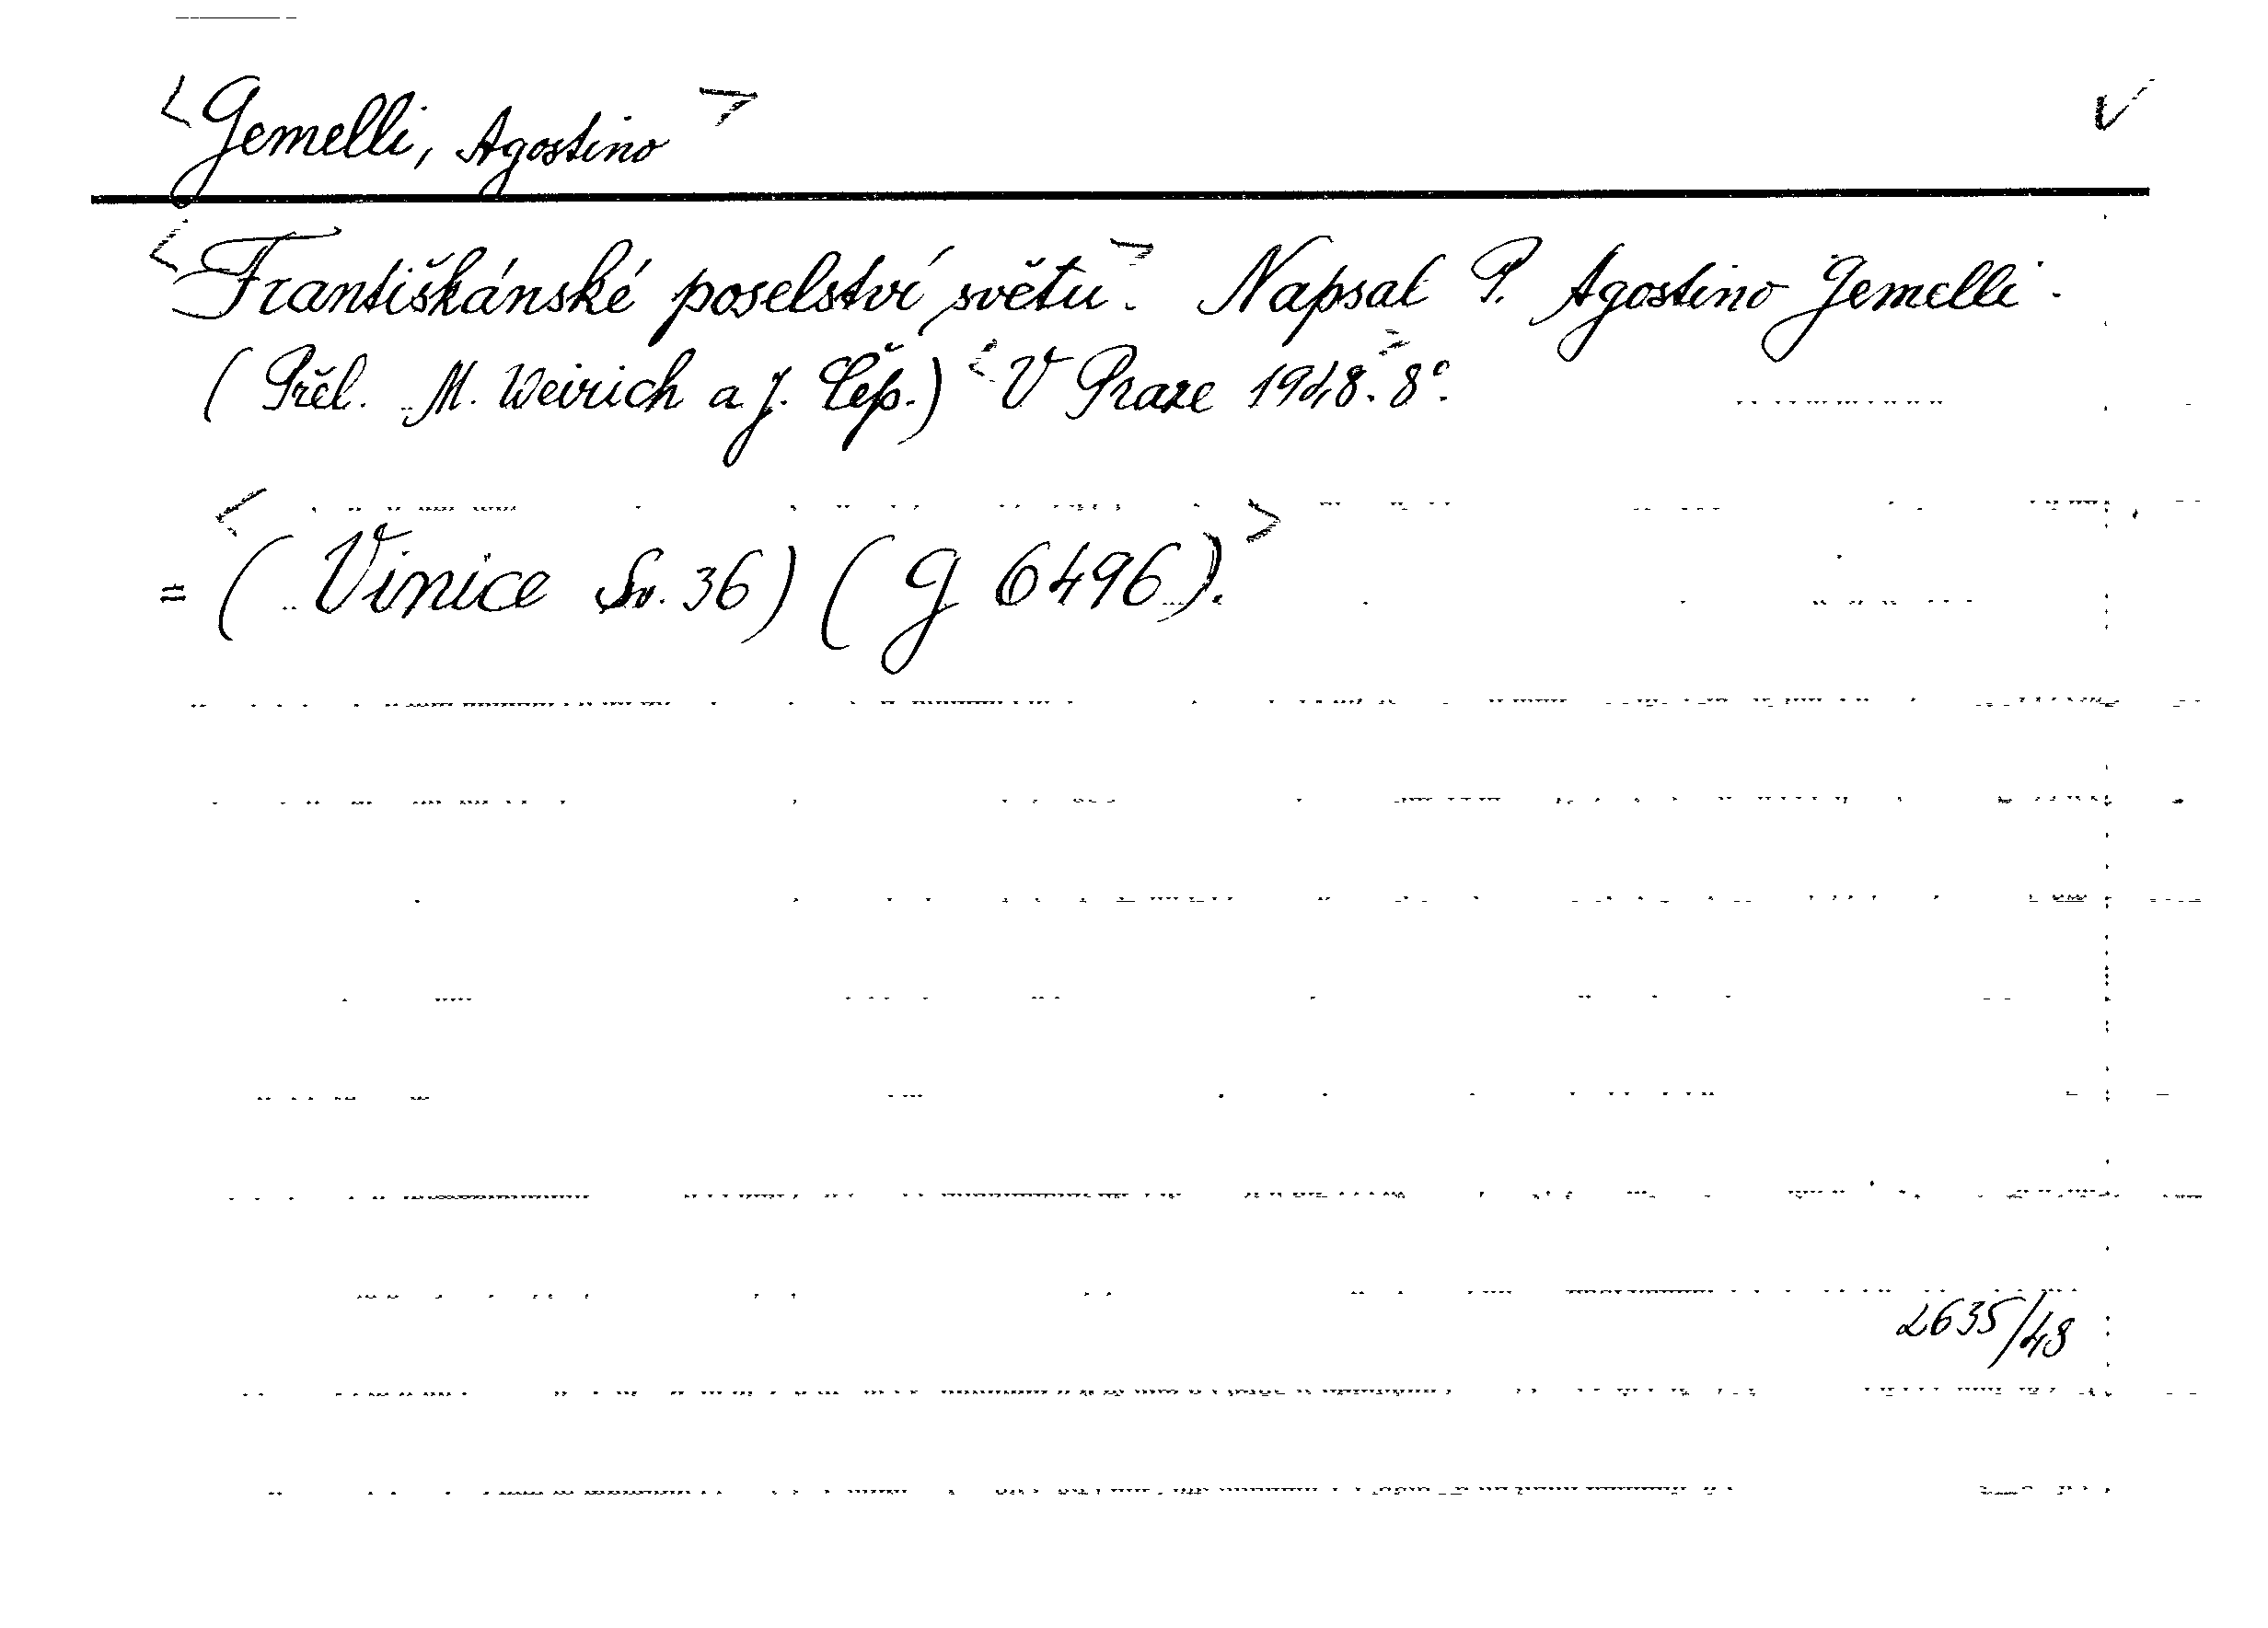 <Gemelli, Agostino> √
<Františkánské poselství světu.> Napsal P. Agostino Gemelli.
(Přel. M. Weirich a J. Čep.) <V Praze 1948.> 8°.
= <(Vinice Sv. 36) (G 6496).>
2635/48